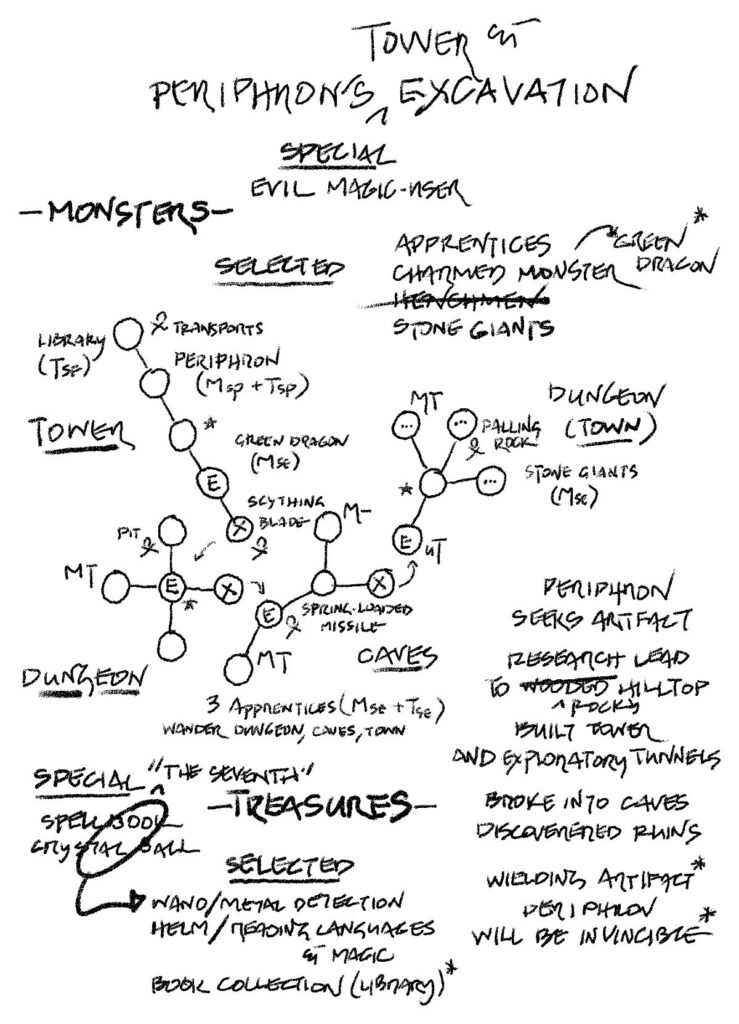 TOWER &
PERIPHRON'S ^ EXCAVATION
SPECIAL
EVIL MAGIC-USER
-MONSTERS-
SELECTED
APPRENTICES
CHARMED MONSTER
*GREEN *
DRAGON
HENCHMEN
STONE GIANTS
LIBRARY
(TSE)
TRANSPORTS
PERIPHRON
(MSP + TSP)
TOWER
*
GREEN DRAGON
(MSE)
E
SCYTHING
BLADE
X
PIT
MT
E
*
X
DUNGEON
M-
E
X
SPRING-LOADED
MISSILE
MT
CAVES
MT
...
...
FALLING
ROCK
*
...
STONE GIANTS
(MSE)
E
UT
DUNGEON
(TOWN)
3 APPRENTICES (MSE + TSE)
WANDER DUNGEON, CAVES, TOWN
PERIPHRON
SEEKS ARTIFACT
RESEARCH LEAD
TO WOODED HILLTOP
^ ROCKY
BUILT TOWER
AND EXPLORATORY TUNNELS
BROKE INTO CAVES
DISCOVERERED RUINS
WIELDING ARTIFACT*
PERIPHRON
WILL BE INVINCIBLE*
SPECIAL ^ "THE SEVENTH"
SPELL BOOK
CRYSTAL BALL
-TREASURES-
SELECTED
WAND/METAL DETECTION
HELM/READING LANGUAGES
& MAGIC
BOOK COLLECTION (LIBRARY)*